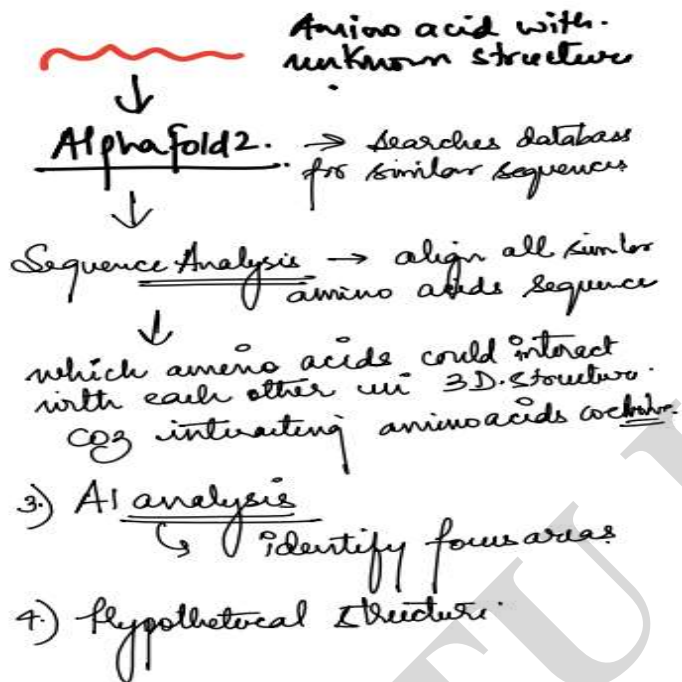 Amino acid with
unknown structure
Alphafold2. → searches database
for similar sequences
Sequence Analysis → align all similar
amino acids sequence
which amino acids could interact
with each other in 3D structure.
COZ interacting aminoacids coevolve.
3.) AI analysis
identify focus areas
4.) Hypothetical structure.
TU